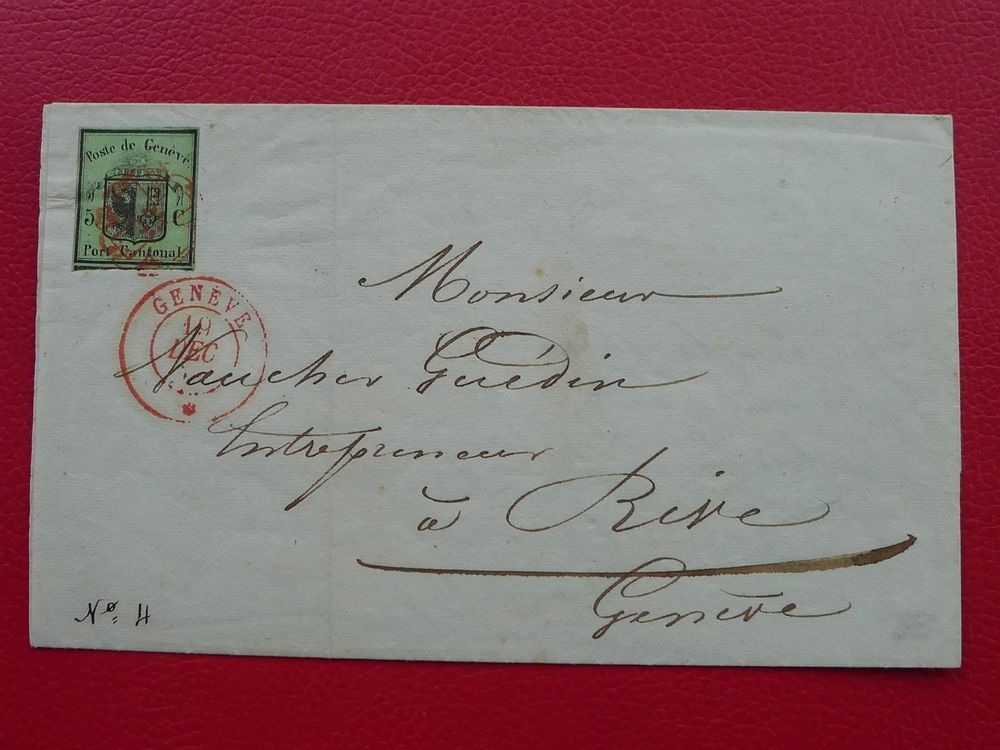 Poste de Genève
5 C
Port Cantonal
GENÈVE
19
DEC
Monsieur
Vaucher Guédin
Entrepreneur
à Rive
Genève
No. 4